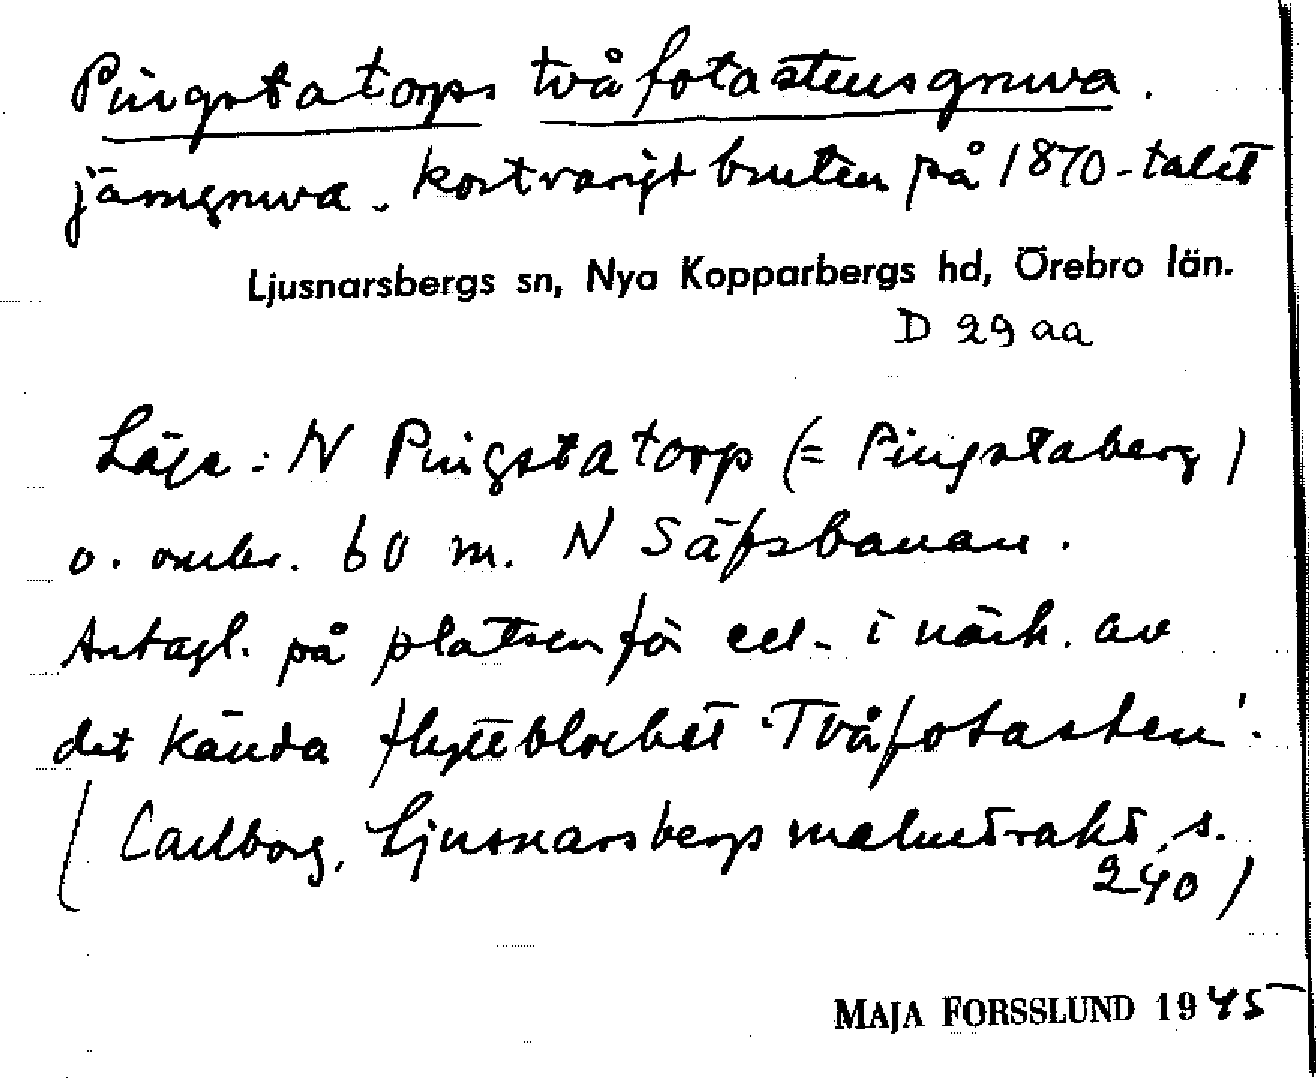 Pingstatorps tvåfotastensgruva.
järngruva. kortvarigt bruten på 1870-talet
Ljusnarsbergs sn, Nya Kopparbergs hd, Örebro län.
D 29 aa
Läge: N Pingstatorp (= Pingstaberg)
o. omkr. 60 m. N Säfsbanan.
Antagl. på platsen för el. i närh. av
det kända flyttblocket 'Tvåfotasten'.
(Carlborg, Ljusnarsbergs malmtrakt, s.
240)
MAJA FORSSLUND 1945